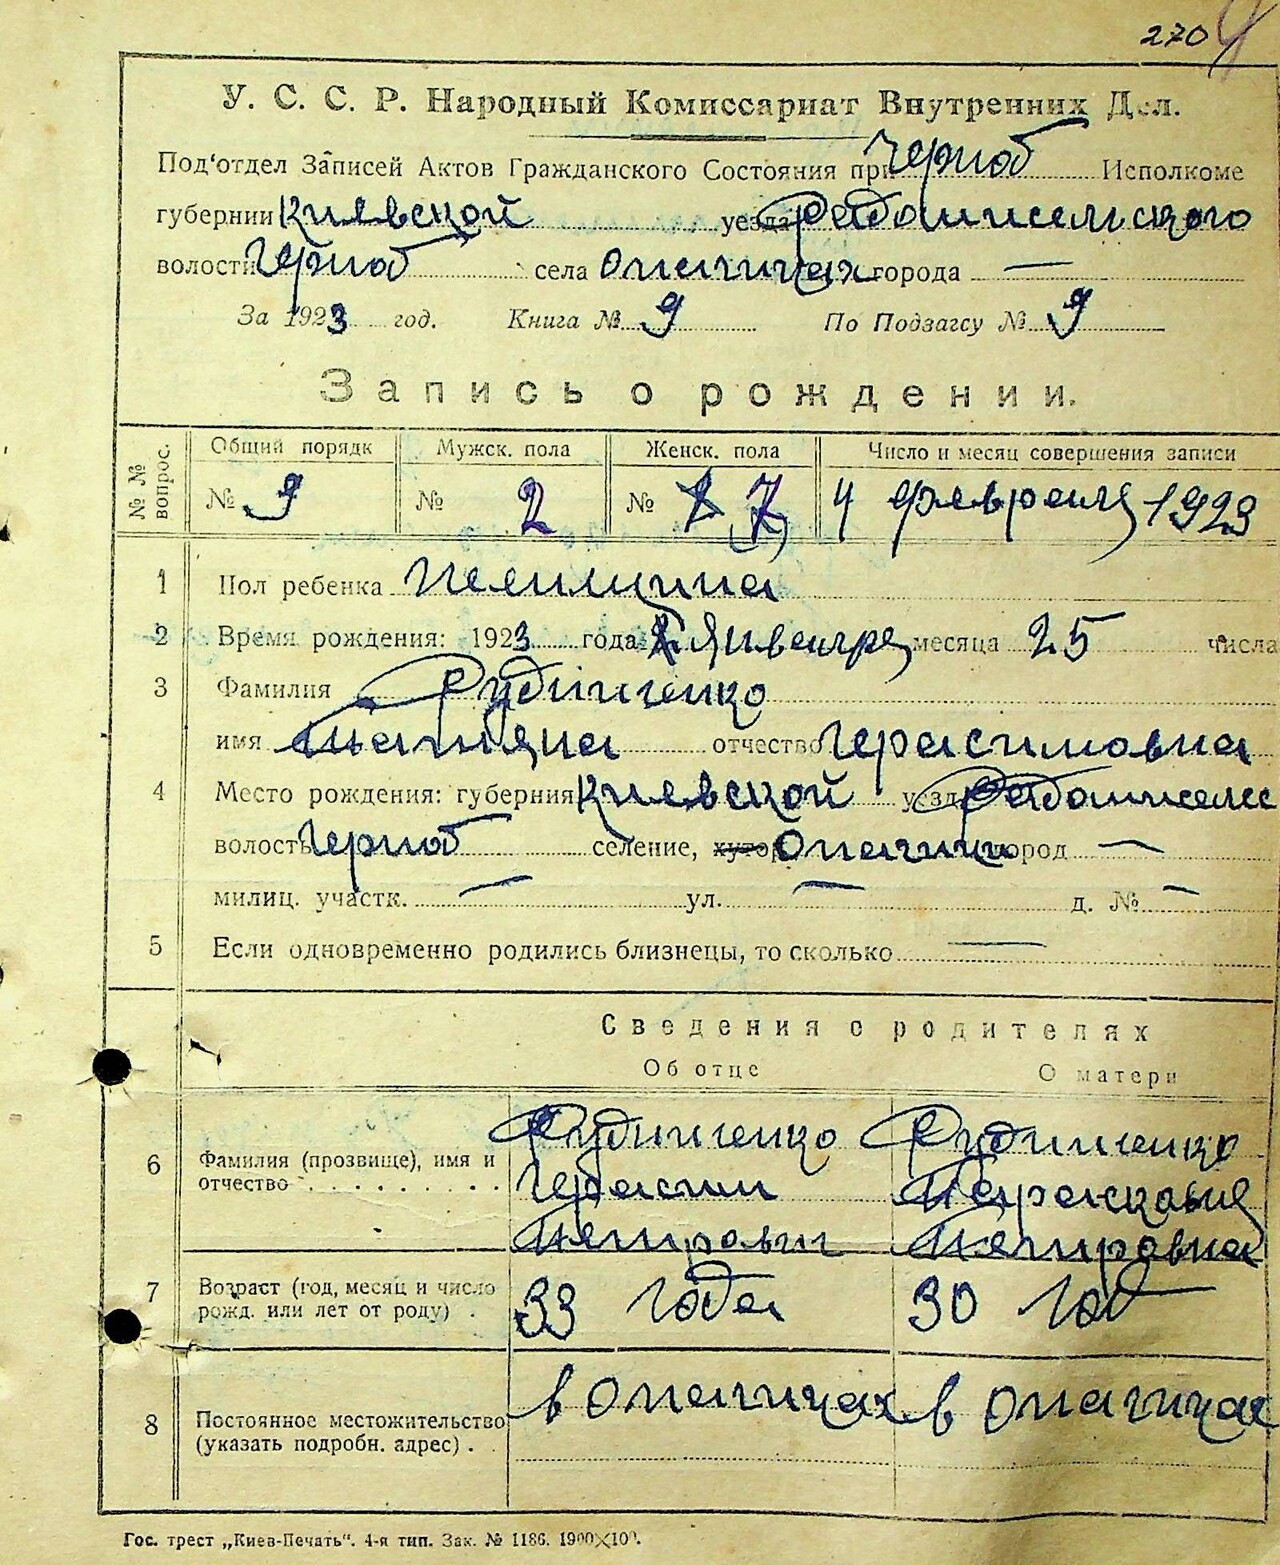 270
У. С. С. Р. Народный Комиссариат Внутренних Дел.
Под'отдел Записей Актов Гражданского Состояния при Черноб Исполкоме
губернии Киевской уезда Радомисельского
волости Черноб села Опачичах города —
За 1923 год. Книга № 9 По Подзагсу № 9
Запись о рождении.
№ № вопрос. Общий порядк Мужск. пола Женск. пола Число и месяц совершения записи
№ 9 № 2 № 7 4 февраля 1923
1 Пол ребенка
2 Время рождения: 1923 года Января месяца 25 числа
3 Фамилия Рудниченко
имя Татияна отчество Герасимовна
4 Место рождения: губерния Киевской уезд Радомисельс
волость Черноб селение, хутор Опачичи город —
милиц. участк. — ул. — д. № —
5 Если одновременно родились близнецы, то сколько —
Сведения о родителях
Об отце О матери
6 Фамилия (прозвище), имя и отчество . . . . . . . . .
Рудниченко Рудниченко
Герасим Парасковия
Петрович Петровна
7 Возраст (год, месяц и число рожд. или лет от роду) .
33 года 30 год
8 Постоянное местожительство (указать подробн. адрес) . .
в Опачичах в Опачичах
Гос. трест „Киев-Печать“. 4-я тип. Зак. № 1186. 1900×100.